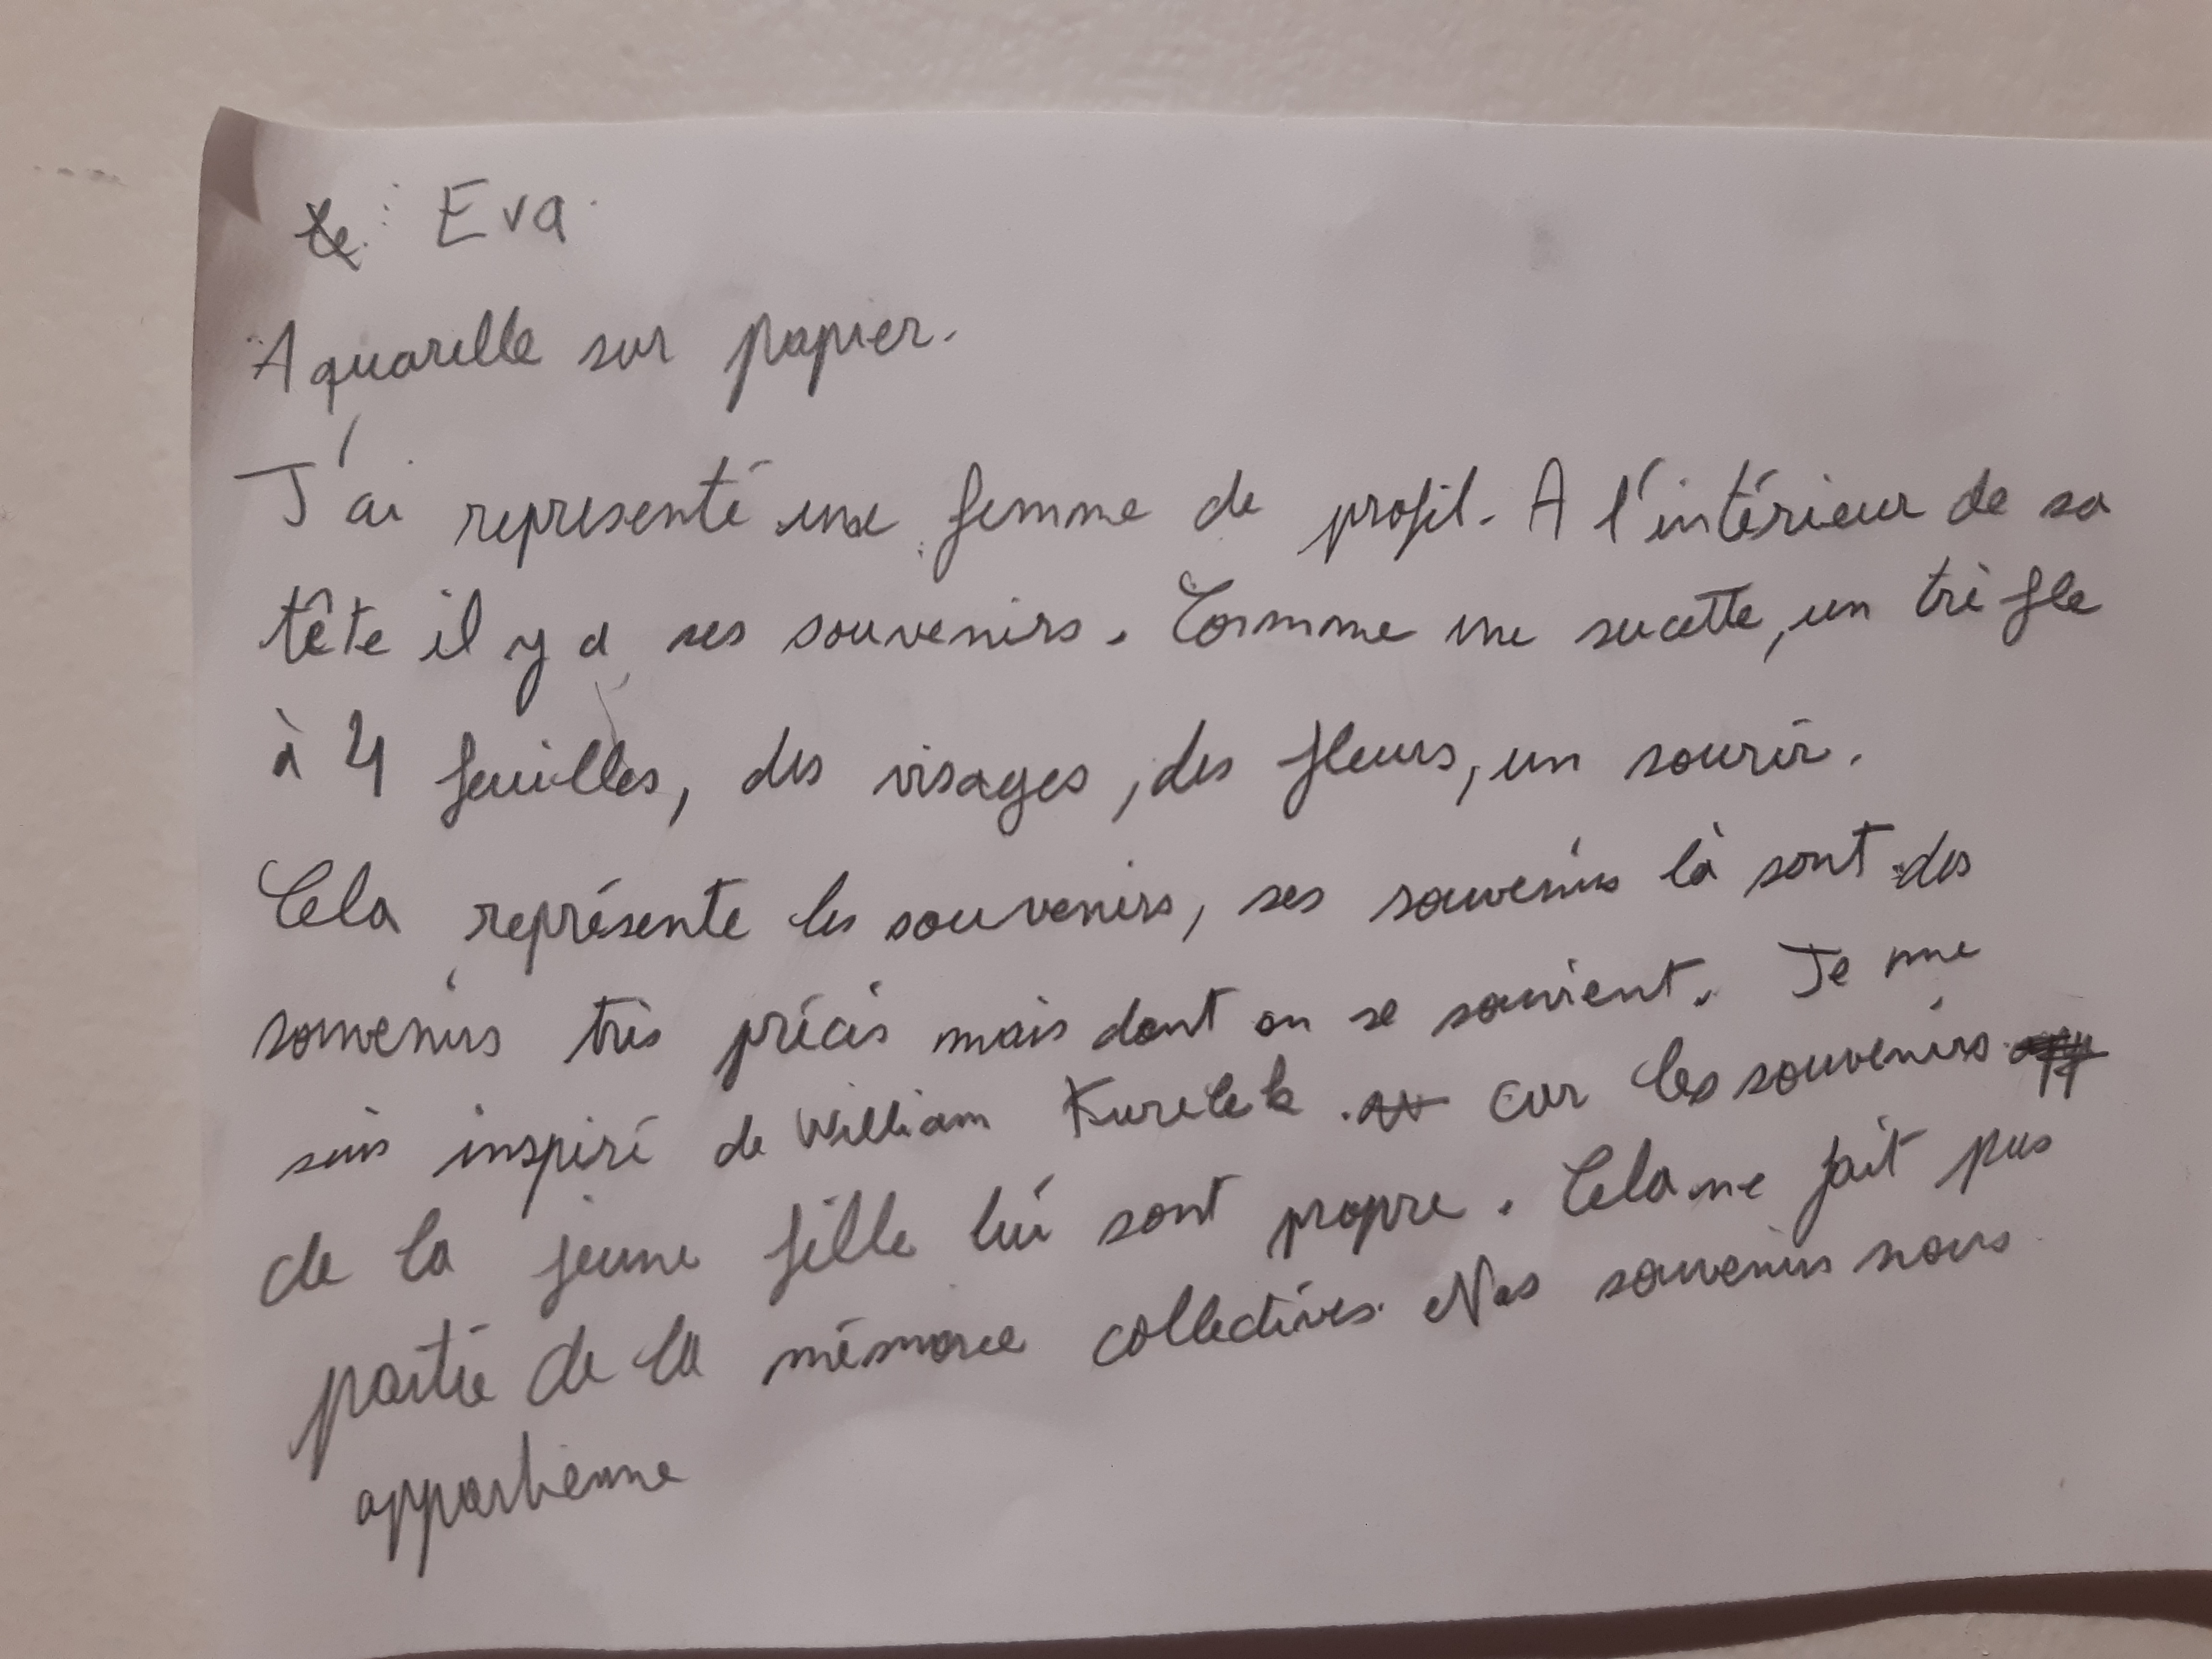 Eva
Aquarelle sur papier.
J'ai représenté une femme de profil. A l'intérieur de sa
tête il y a ses souvenirs. Comme une sucette, un trèfle
à 4 feuilles, des visages, des fleurs, un sourir.
Cela représente les souvenirs, ses souvenirs là sont des
souvenirs très précis mais dont on se souvient. Je me
suis inspiré de William Kurelek car les souvenirs
de la jeune fille lui sont propre. Cela ne fait pas
partie de la mémoire collectives. Nos souvenirs nous
appartienne